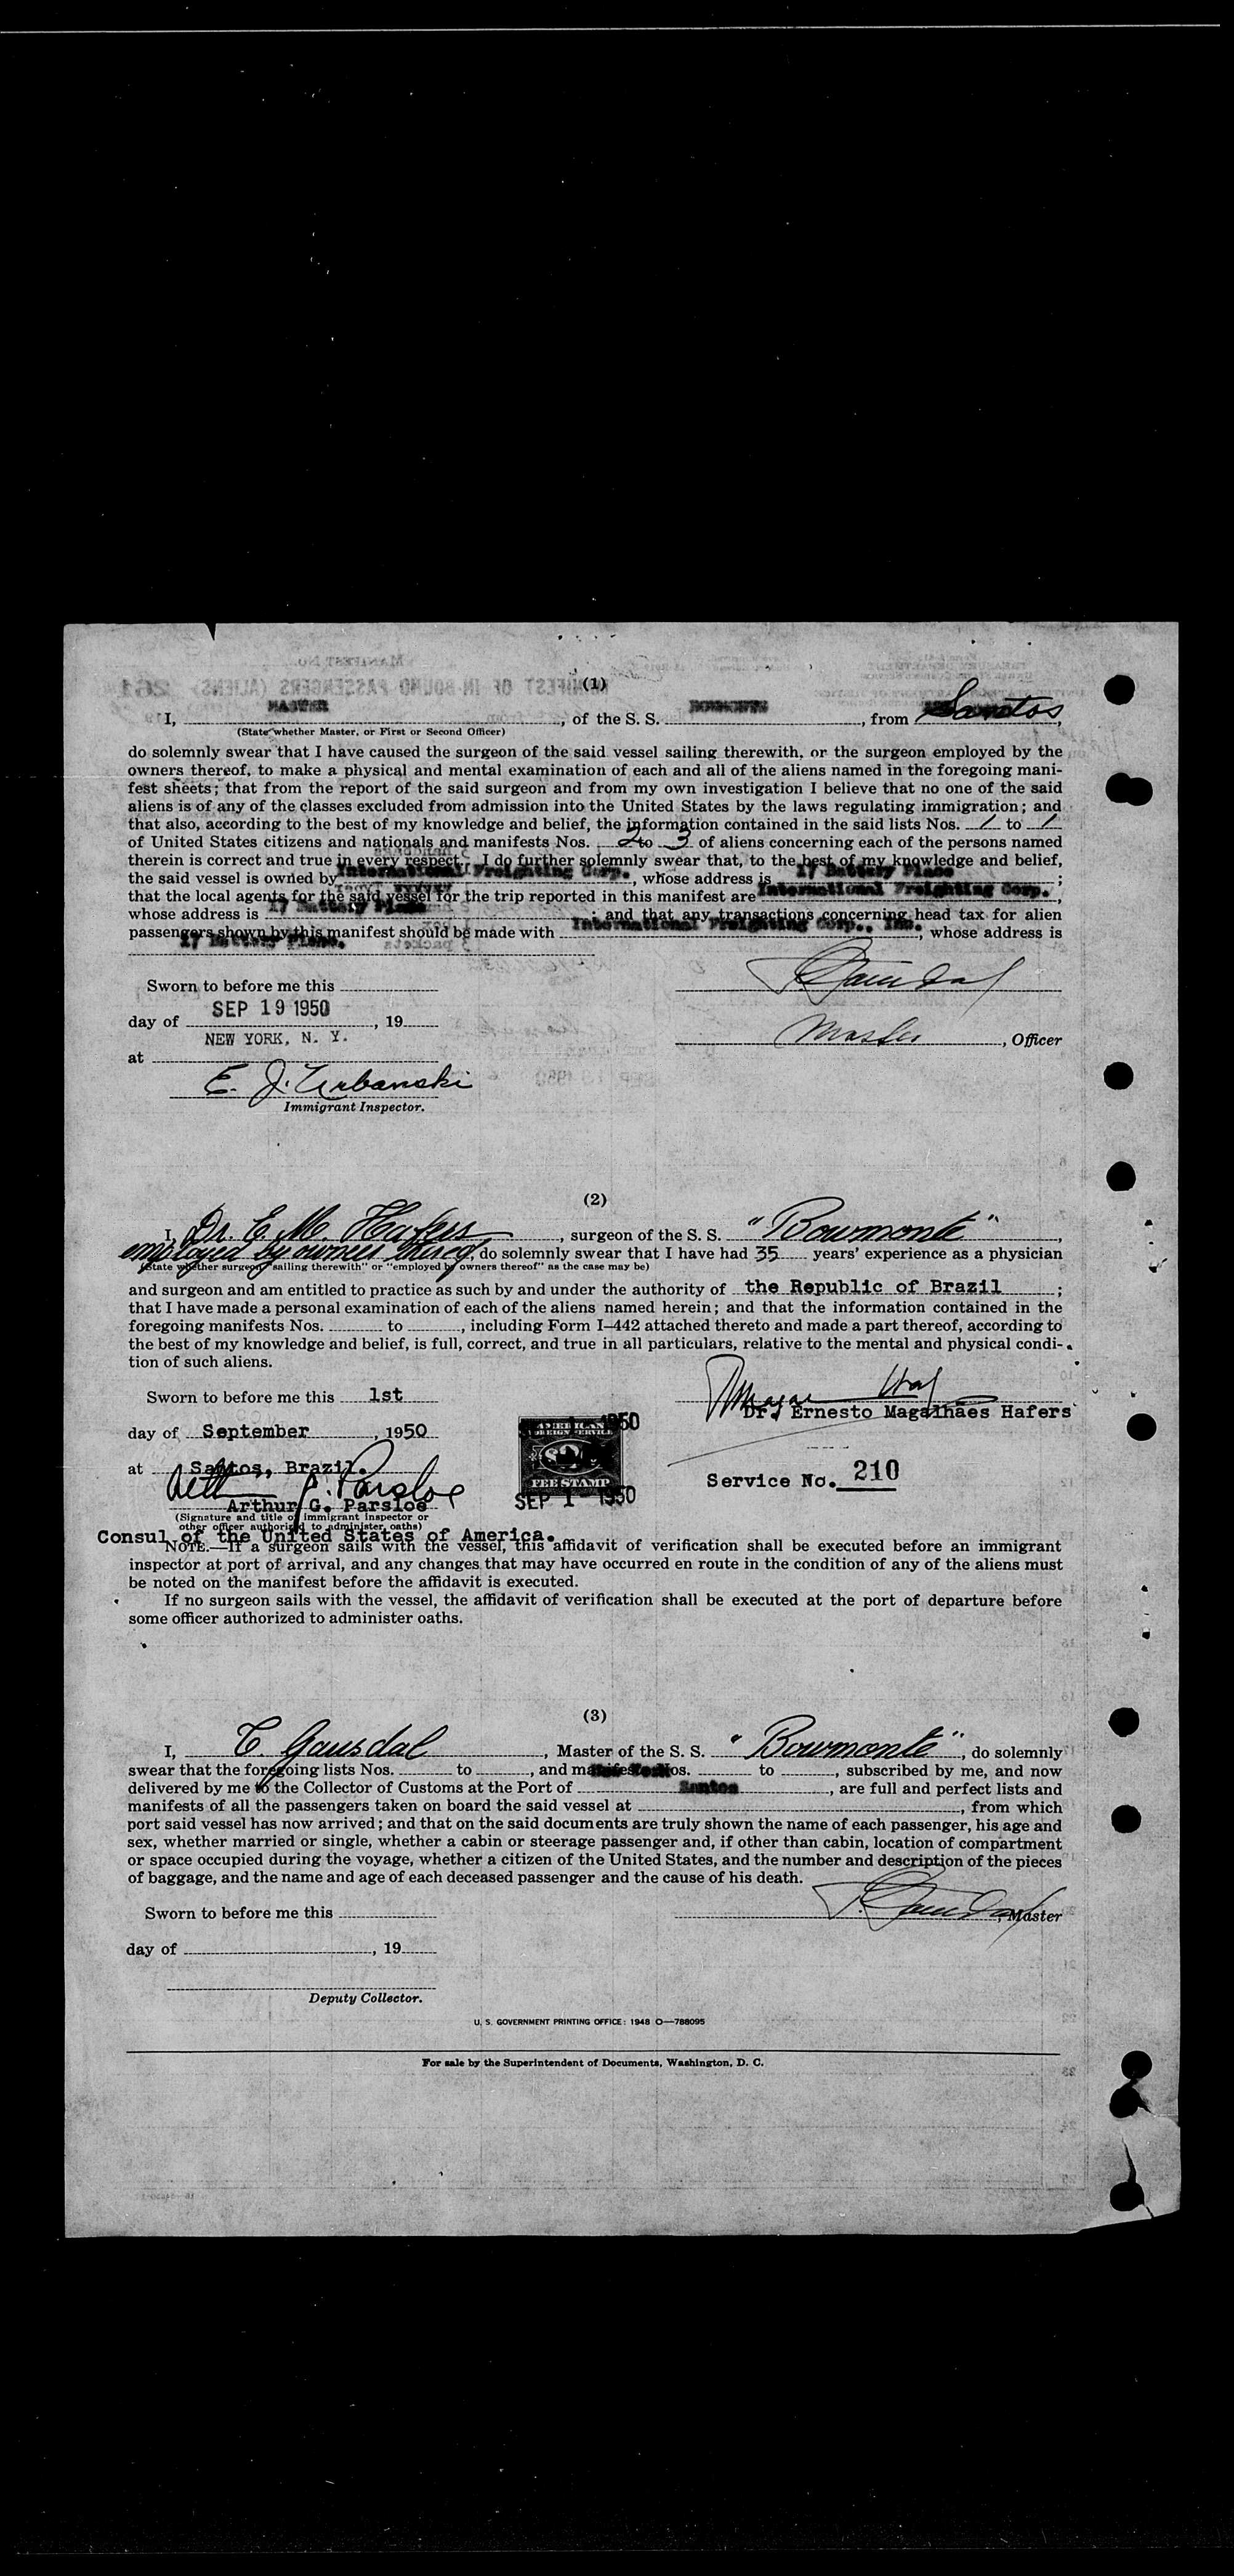 (1)
I, MASTER, of the S. S. BOWMONTE, from Santos,
(State whether Master, or First or Second Officer)
do solemnly swear that I have caused the surgeon of the said vessel sailing therewith, or the surgeon employed by the
owners thereof, to make a physical and mental examination of each and all of the aliens named in the foregoing mani-
fest sheets; that from the report of the said surgeon and from my own investigation I believe that no one of the said
aliens is of any of the classes excluded from admission into the United States by the laws regulating immigration; and
that also, according to the best of my knowledge and belief, the information contained in the said lists Nos. 1 to 1
of United States citizens and nationals and manifests Nos. 2 to 3 of aliens concerning each of the persons named
therein is correct and true in every respect. I do further solemnly swear that, to the best of my knowledge and belief,
the said vessel is owned by International Freighting Corp., whose address is 17 Battery Place;
that the local agents for the said vessel for the trip reported in this manifest are International Freighting Corp.,
whose address is 17 Battery Place; and that any transactions concerning head tax for alien
passengers shown by this manifest should be made with International Freighting Corp., Inc., whose address is
17 Battery Place.
Sworn to before me this
day of SEP 19 1950, 19
Master, Officer
at NEW YORK, N. Y.
E. J. Urbanski
Immigrant Inspector.
(2)
I, Dr. E. M. Hafers, surgeon of the S. S. "Bowmonte",
employed by owners thereof, do solemnly swear that I have had 35 years' experience as a physician
(State whether surgeon "sailing therewith" or "employed by owners thereof" as the case may be)
and surgeon and am entitled to practice as such by and under the authority of the Republic of Brazil;
that I have made a personal examination of each of the aliens named herein; and that the information contained in the
foregoing manifests Nos. to , including Form I-442 attached thereto and made a part thereof, according to
the best of my knowledge and belief, is full, correct, and true in all particulars, relative to the mental and physical condi-
tion of such aliens.
Sworn to before me this 1st
Dr. Ernesto Magalhães Hafers
day of September, 1950
AMERICAN
FOREIGN SERVICE
FEE STAMP
SEP 1 - 1950
at Santos, Brazil.
Service No. 210
Arthur G. Parsloe
Arthur G. Parsloe
(Signature and title of immigrant inspector or
other officer authorized to administer oaths)
Consul of the United States of America.
NOTE.—If a surgeon sails with the vessel, this affidavit of verification shall be executed before an immigrant
inspector at port of arrival, and any changes that may have occurred en route in the condition of any of the aliens must
be noted on the manifest before the affidavit is executed.
If no surgeon sails with the vessel, the affidavit of verification shall be executed at the port of departure before
some officer authorized to administer oaths.
(3)
I, T. Gausdal, Master of the S. S. "Bowmonte", do solemnly
swear that the foregoing lists Nos. to , and manifests Nos. to , subscribed by me, and now
delivered by me to the Collector of Customs at the Port of Santos, are full and perfect lists and
manifests of all the passengers taken on board the said vessel at , from which
port said vessel has now arrived; and that on the said documents are truly shown the name of each passenger, his age and
sex, whether married or single, whether a cabin or steerage passenger and, if other than cabin, location of compartment
or space occupied during the voyage, whether a citizen of the United States, and the number and description of the pieces
of baggage, and the name and age of each deceased passenger and the cause of his death.
Sworn to before me this
, Master
day of , 19
Deputy Collector.
U. S. GOVERNMENT PRINTING OFFICE: 1948 O—788095
For sale by the Superintendent of Documents, Washington, D. C.